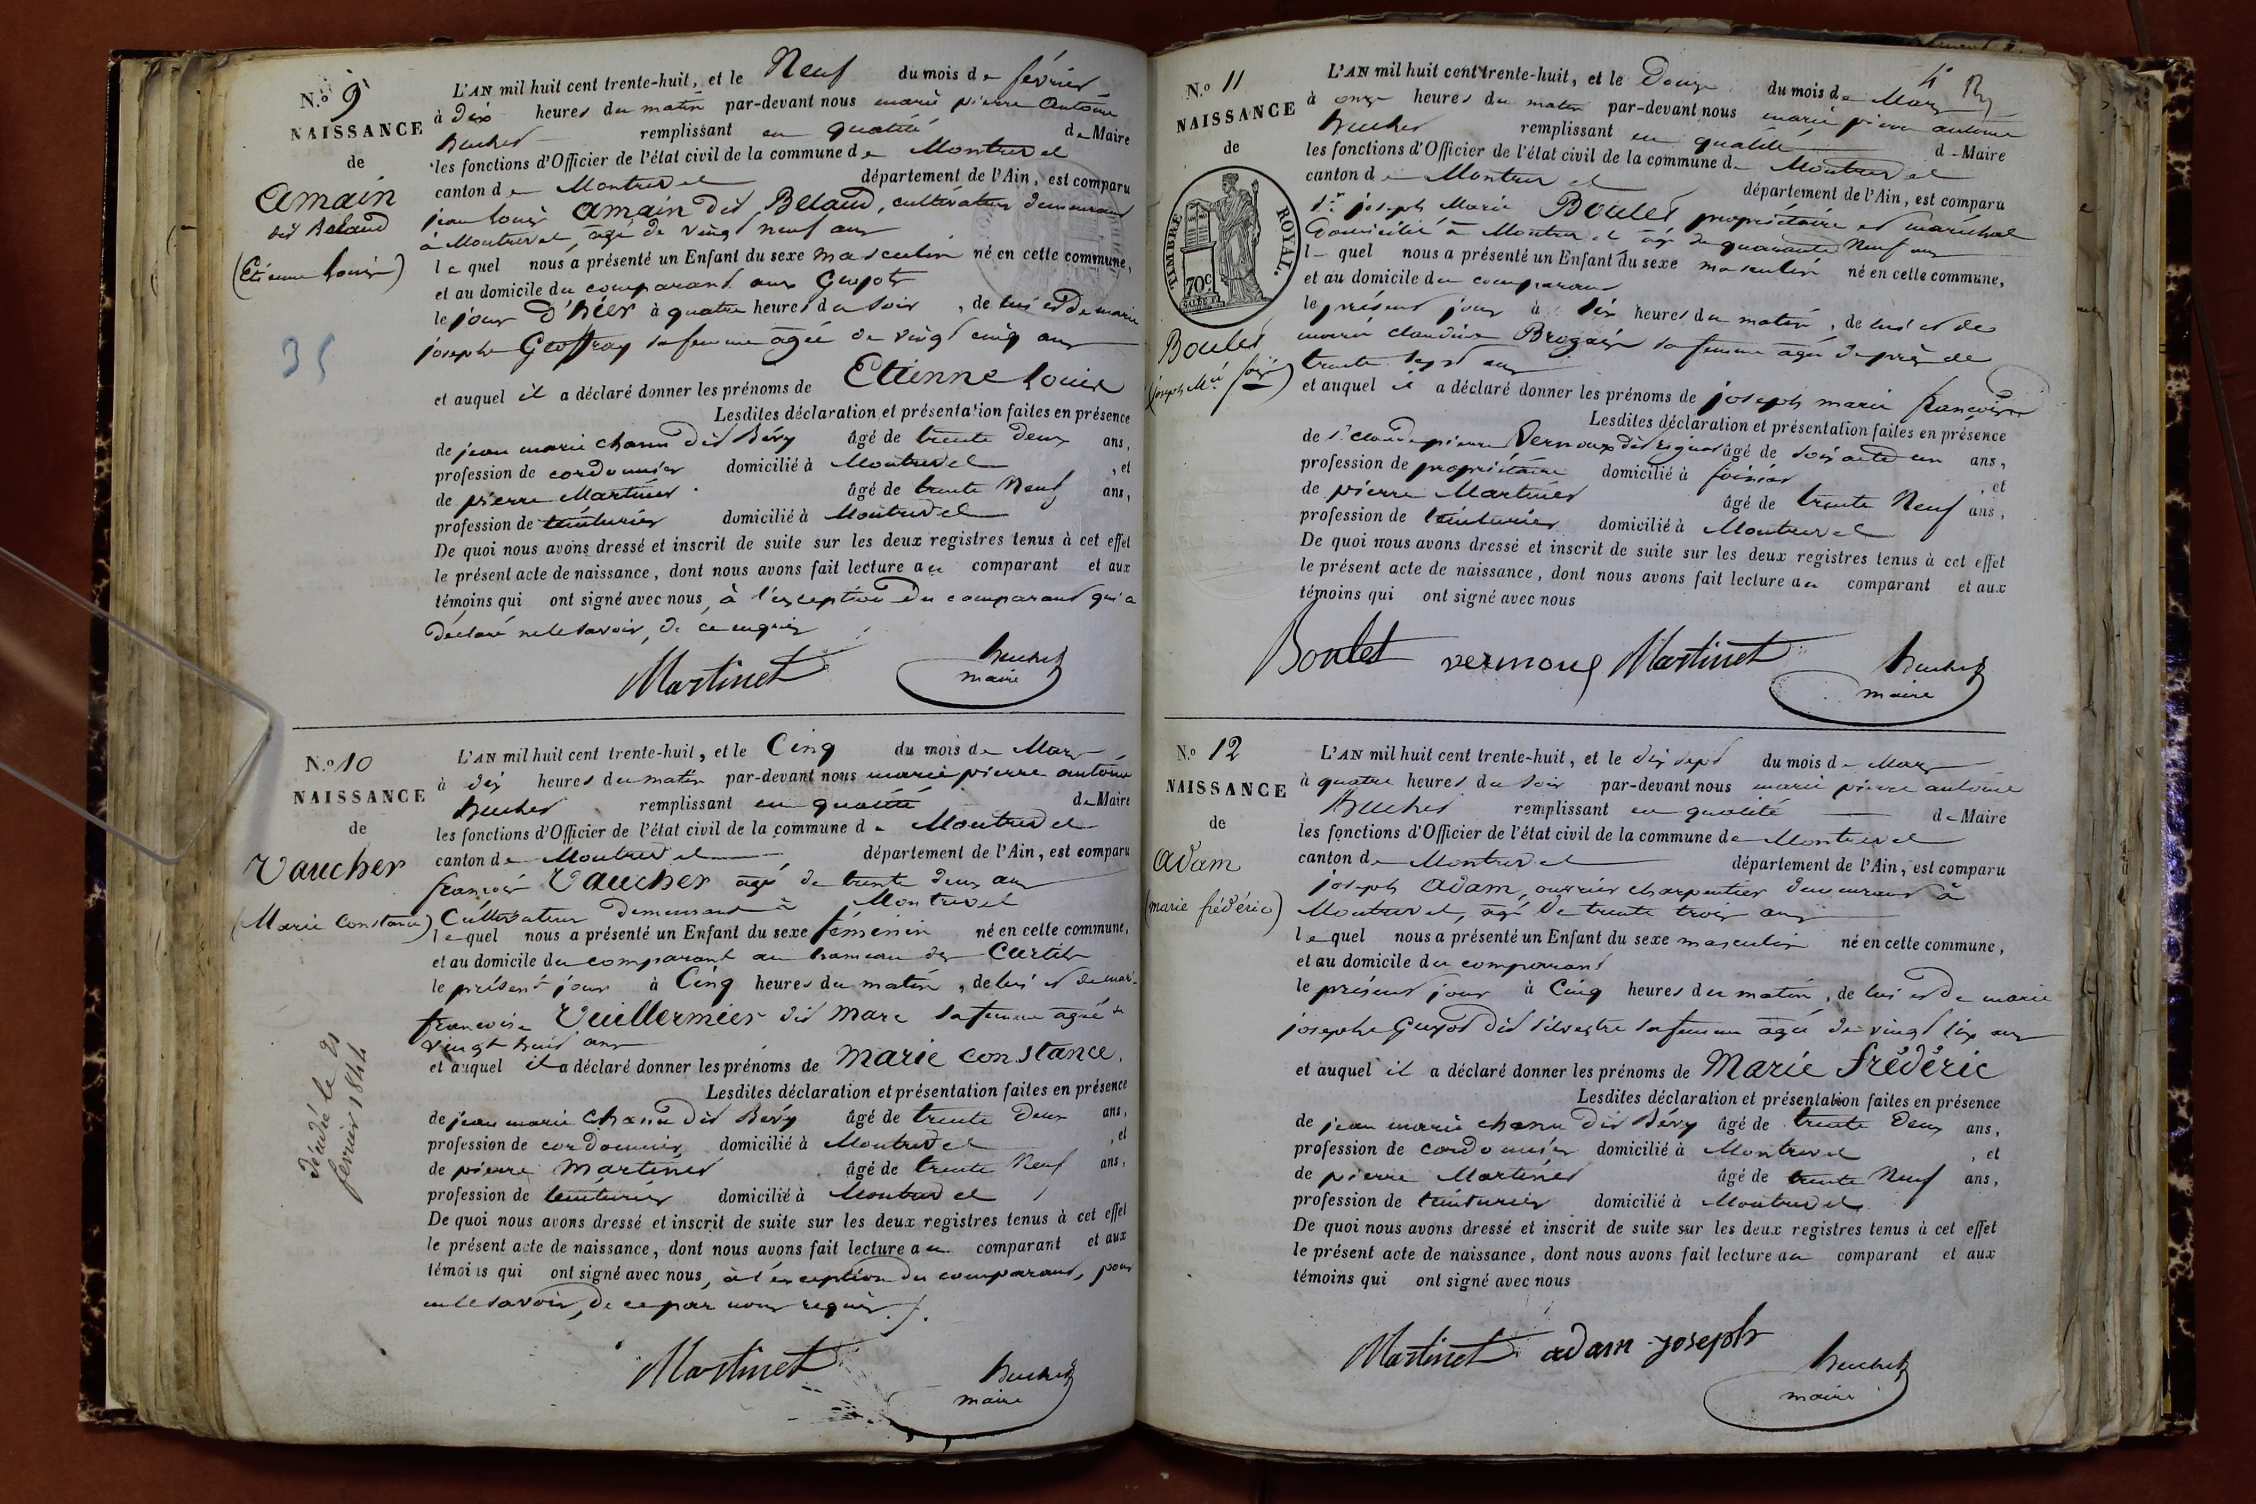 N.º 9
NAISSANCE
de
Amain
dit Belaud
(Etienne Louis)
35
L'AN mil huit cent trente-huit, et le Neuf du mois de février
à dix heures du matin par-devant nous marie pierre Antoine
huchet remplissant en qualité de Maire
les fonctions d'Officier de l'état civil de la commune de Montrevel
canton de Montrevel département de l'Ain, est comparu
jean louis Amain dit Belaud, cultivateur demeurant
à Montrevel, âgé de vingt neuf ans
lequel nous a présenté un Enfant du sexe masculin né en cette commune,
et au domicile du comparant aux Guyots
le jour d'hier à quatre heures du soir, de lui et de marie
josephe Geoffray sa femme âgée de vingt cinq ans
et auquel il a déclaré donner les prénoms de Etienne Louis
Lesdites déclaration et présentation faites en présence
de jean marie chanu dit Béry âgé de trente deux ans,
profession de cordonnier domicilié à Montrevel, et
de pierre Martinet âgé de trente Neuf ans,
profession de teinturier domicilié à Montrevel
De quoi nous avons dressé et inscrit de suite sur les deux registres tenus à cet effet
le présent acte de naissance, dont nous avons fait lecture au comparant et aux
témoins qui ont signé avec nous, à l'exception du comparant qui a
déclaré ne le savoir, de ce enquis
Martinet huchet
maire
N.º 10
NAISSANCE
de
Vaucher
(Marie Constance)
décédé le 25
février 1844
L'AN mil huit cent trente-huit, et le Cinq du mois de Mars
à dix heures du matin par-devant nous marie pierre antoine
huchet remplissant en qualité de Maire
les fonctions d'Officier de l'état civil de la commune de Montrevel
canton de Montrevel département de l'Ain, est comparu
françois Vaucher âgé de trente deux ans
Cultivateur demeurant à Montrevel
lequel nous a présenté un Enfant du sexe féminin né en cette commune,
et au domicile du comparant au hameau des Curtils
le présent jour à Cinq heures du matin, de lui et de marie
françoise Vuillermier dit Marc sa femme âgée de
vingt huit ans
et auquel il a déclaré donner les prénoms de Marie constance.
Lesdites déclaration et présentation faites en présence
de jean marie chanu dit Béry âgé de trente deux ans,
profession de cordonnier domicilié à Montrevel, et
de pierre Martinet âgé de trente Neuf ans,
profession de teinturier domicilié à Montrevel
De quoi nous avons dressé et inscrit de suite sur les deux registres tenus à cet effet
le présent acte de naissance, dont nous avons fait lecture au comparant et aux
témoins qui ont signé avec nous, à l'exception du comparant, pour
ne le savoir, de ce par nous requis
Martinet huchet
maire
4e
N.º 11
NAISSANCE
de
TIMBRE ROYAL.
70c
Boulet
(joseph Mie fois)
L'AN mil huit cent trente-huit, et le Douze du mois de Mars
à onze heures du matin par-devant nous marie pierre antoine
huchet remplissant en qualité de Maire
les fonctions d'Officier de l'état civil de la commune de Montrevel
canton de Montrevel département de l'Ain, est comparu
Sr joseph Marie Boulet propriétaire et maréchal
Domicilié à Montrevel âgé de quarante Neuf ans
lequel nous a présenté un Enfant du sexe masculin né en cette commune,
et au domicile du comparant
le présent jour à six heures du matin, de lui et de
marie claudine sa femme âgée de près de
trente sept ans
et auquel il a déclaré donner les prénoms de joseph marie françois
Lesdites déclaration et présentation faites en présence
de Sr claude pierre Vernoux dit âgé de soixante un ans,
profession de propriétaire domicilié à foissiat, et
de pierre Martinet âgé de trente Neuf ans,
profession de teinturier domicilié à Montrevel
De quoi nous avons dressé et inscrit de suite sur les deux registres tenus à cet effet
le présent acte de naissance, dont nous avons fait lecture au comparant et aux
témoins qui ont signé avec nous
Boulet vernoux Martinet huchet
maire
N.º 12
NAISSANCE
de
Adam
(marie frédéric)
L'AN mil huit cent trente-huit, et le dix sept du mois de Mars
à quatre heures du soir par-devant nous marie pierre antoine
huchet remplissant en qualité de Maire
les fonctions d'Officier de l'état civil de la commune de Montrevel
canton de Montrevel département de l'Ain, est comparu
joseph Adam, ouvrier charpentier demeurant à
Montrevel, âgé de trente trois ans
lequel nous a présenté un Enfant du sexe masculin né en cette commune,
et au domicile du comparant
le présent jour à Cinq heures du matin, de lui et de marie
josephe Guyot dit silvestre sa femme âgée de vingt six ans
et auquel il a déclaré donner les prénoms de Marie frédéric
Lesdites déclaration et présentation faites en présence
de jean marie chanu dit Béry âgé de trente deux ans,
profession de cordonnier domicilié à Montrevel, et
de pierre Martinet âgé de trente Neuf ans,
profession de teinturier domicilié à Montrevel
De quoi nous avons dressé et inscrit de suite sur les deux registres tenus à cet effet
le présent acte de naissance, dont nous avons fait lecture au comparant et aux
témoins qui ont signé avec nous
Martinet adam joseph huchet
maire